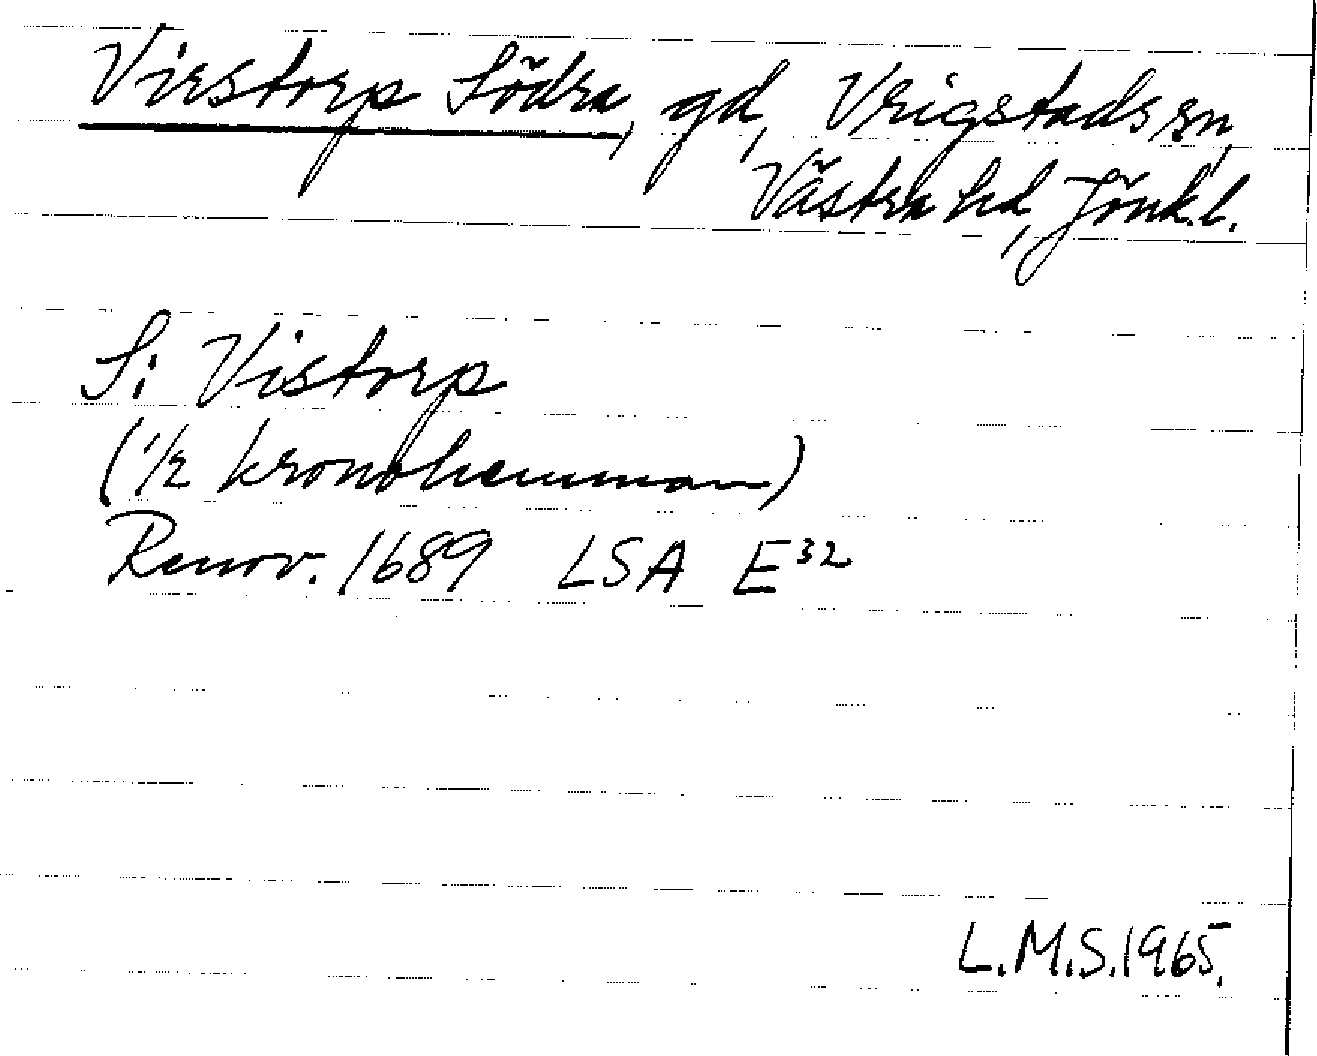 Virstorp Södra, gd, Vrigstads sn,
Västra hd, Jönk.l.
S: Vistorp
(1/2 kronohemman)
Renov. 1689 LSA E³²
L.M.S. 1965.